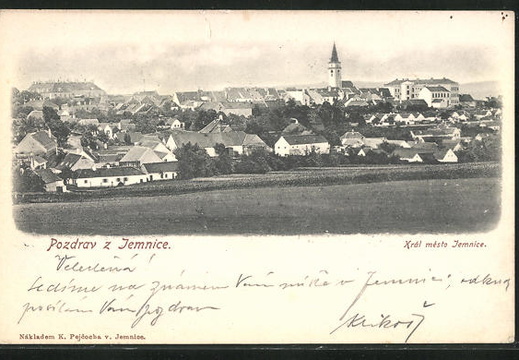 Pozdrav z Jemnice.
Král město Jemnice.
Velectěná!
sedíme na známém Vám místě v Jemnici, odkud
posílám Vám pozdrav
Nákladem K. Pejčocha v. Jemnice.